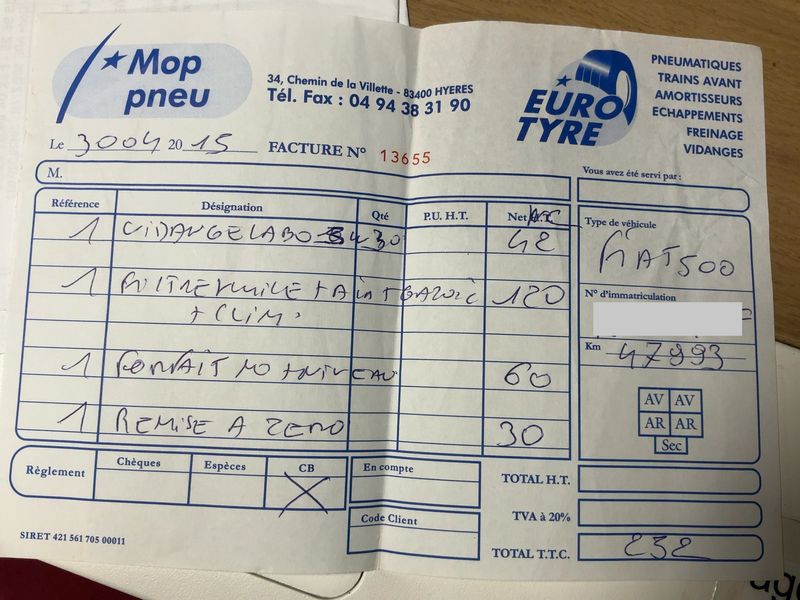 Mop
pneu
34, Chemin de la Villette - 83400 HYERES
Tél. Fax : 04 94 38 31 90
EURO
TYRE
PNEUMATIQUES
TRAINS AVANT
AMORTISSEURS
ECHAPPEMENTS
FREINAGE
VIDANGES
Le 3004 20 15 FACTURE N° 13655
M.
Vous avez été servi par :
Référence Désignation Qté P.U. H.T. Net
1 VIDANGE LABO 5W30 42
1 FILTRE HUILE + AIR + GAZOIL 120
+ CLIM.
1 FORFAIT MO + NIVEAU 60
1 REMISE A ZERO 30
Type de véhicule
FIAT 500
N° d'immatriculation
Km 47993
AV AV
AR AR
Sec
Règlement Chèques Espèces CB
En compte
Code Client
TOTAL H.T.
TVA à 20%
TOTAL T.T.C. 232
SIRET 421 561 705 00011